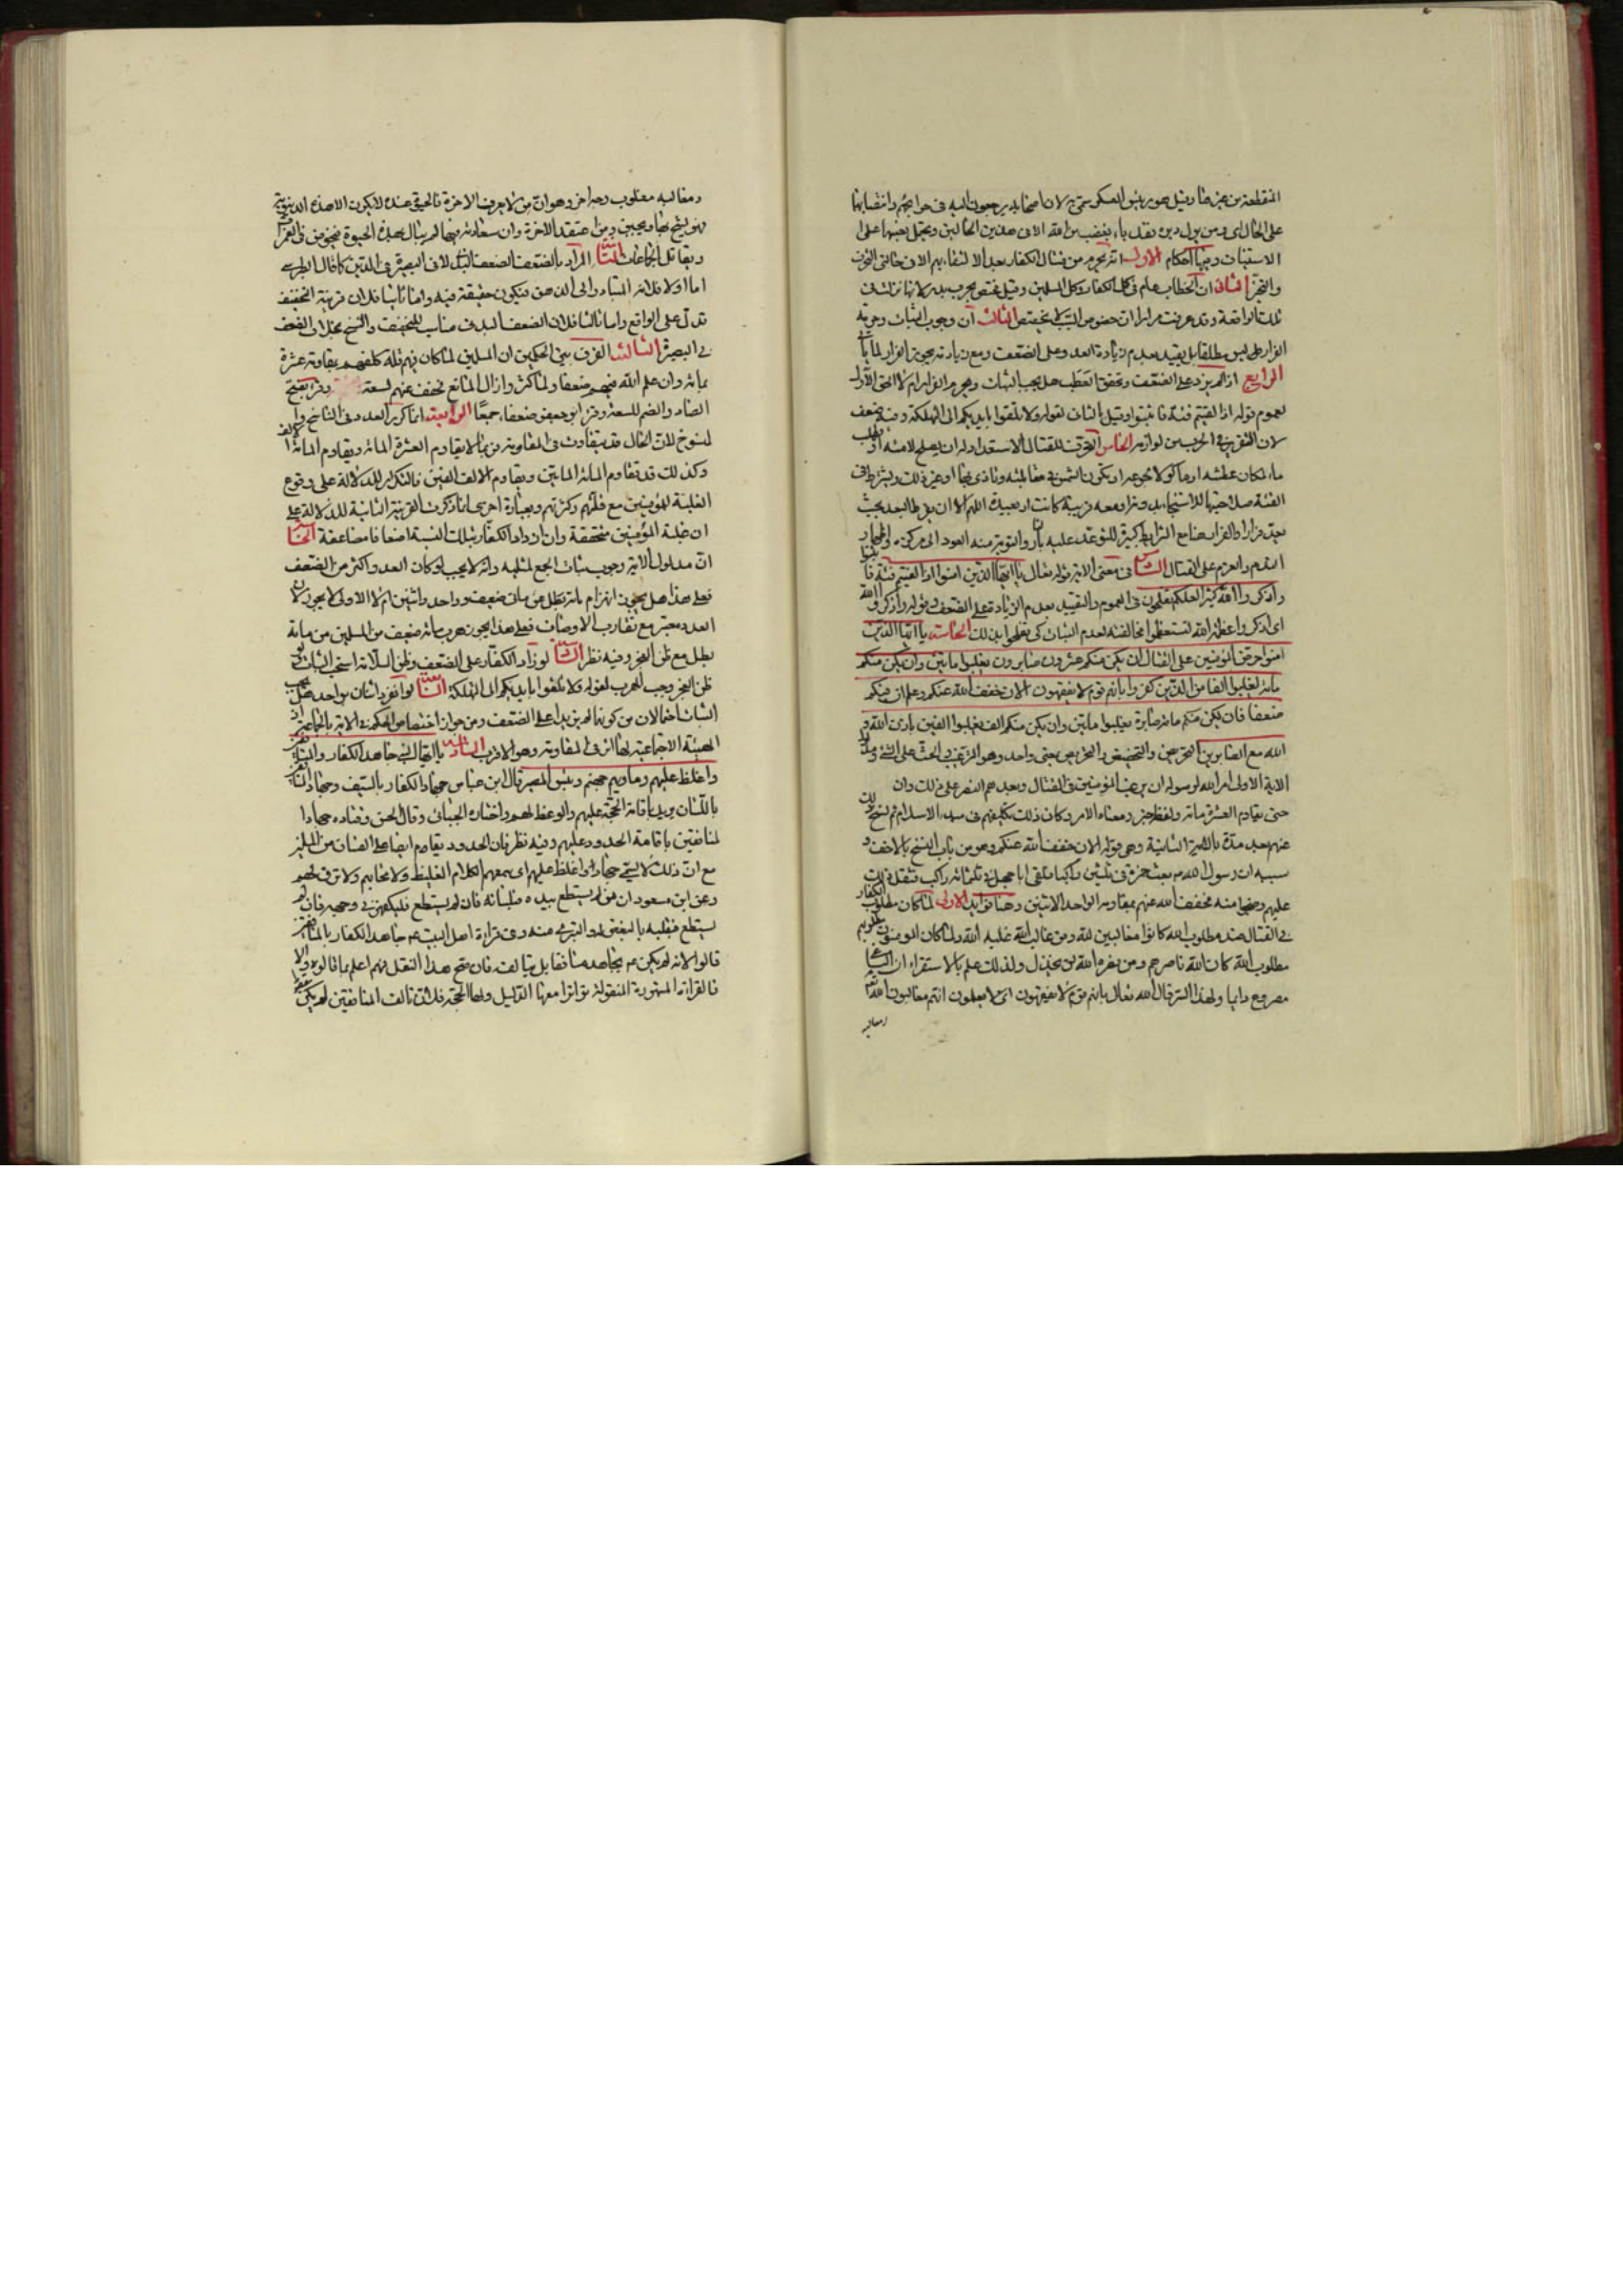 المنقطعة من غيرها وقيل هو رئيس العسكر سمى لان اصحابه يرجعون اليه فى حوائجهم وانتصابها
على الحال اى ومن يول دبره فقد باء بغضب من الله الا فى هذين الحالين ويحتمل نصبها على
الاستثناء وهنا احكام الاول انه يحرم من قتال الكفار بعد الالتقاء بهم الا فى حالتى التحرف
والتحيز الثانى ان الخطاب عام فى كل الكفار وكل المسلمين وقيل يختص بحرب بدر لانها نزلت فى
تلك الواقعة وقد عرفت مرارا ان خصوص السبب لا يخصص الثالث ان وجوب الثبات وحرمة
الفرار ليس مطلقا بل بقيد عدم زيادة العدو على الضعف ومع زيادته يجوز الفرار لما يأتى
الرابع اذا لم يزد على الضعف وتحقق العطب هل يجب الثبات ويحرم الفرار ام لا الحق الاول
لعموم قوله اذا لقيتم فئة فاثبتوا وقيل بالثانى لقوله ولا تلقوا بايديكم الى التهلكة وفيه ضعف
لان التغرير فى الحرب من لوازمه الخامس التحرف للقتال الاستعداد له ان يصلح لامته او يطلب
ماء لمكان عطشه او مأكولا لجوعه او يكون الشمس فى مقابلته وتأذى بها او غير ذلك ويشترط فى
الفئة صلاحيتها للاستنجاد وقرا ومعه قريبة كانت او بعيدة اللهم الا ان يفرط البعد بحيث
يعد فرارا والفرار مع الشرايط كبيرة للتوعد عليه بالنار والتوبة منه العود الى مركزه او اظهار
الندم والعزم على القتال السادس فى معنى الاية قوله تعالى يا ايها الذين امنوا اذا لقيتم فئة فاثبتوا
واذكروا الله كثيرا لعلكم تفلحون فى العموم والتقييد بعدم الزيادة على الضعف وقوله واذكروا الله
اى اذكروا عظمة الله لتستعظموا مخالفته لعدم الثبات كى تفلحوا بذلك الخامسة يا ايها النبى
حرض المؤمنين على القتال ان يكن منكم عشرون صابرون يغلبوا مائتين وان يكن منكم
مائة يغلبوا الفا من الذين كفروا بانهم قوم لا يفقهون الان خفف الله عنكم وعلم ان فيكم
ضعفا فان يكن منكم مائة صابرة يغلبوا مائتين وان يكن منكم الف يغلبوا الفين باذن الله و
الله مع الصابرين التحريض والتحضيض والتحريص بمعنى واحد وهو الترغيب والحث على الشئ
الاية الاولى امر الله لرسوله ان يرغب المؤمنين فى القتال ويعدهم النصر على ذلك وان
حتى يقاوم العشرة مائة ولفظه خبر ومعناه الامر وكان ذلك تكليفهم فى مبدء الاسلام ثم نسخ ذلك
عنهم بعد مدة بالاية الثانية وهى قوله الان خفف الله عنكم وهو من باب النسخ بالاخف و
سببه ان رسول الله بعث حمزة فى ثلثين راكبا فلقى ابا جهل فى ثلثمائة راكب فثقل ذلك
عليهم وضجوا منه فخفف الله عنهم بمقاومة الواحد الاثنين وهنا فوايد الاولى لما كان مطلوب الكفار
فى القتال ضد مطلوب الله كانوا مغالبين لله ومن غالب الله غلبه الله ولما كان المؤمنون مطلوبهم
مطلوب الله كان الله ناصرهم ومن نصره الله لن يخذل ولذلك علم بالاستقراء ان الباغى
مصروع دايما ولهذا السر قال الله تعالى بانهم قوم لا يفقهون اى لا يعلمون انهم مغالبون الله
ومغالبه
ومغالبه مغلوب وجه اخر وهو ان من لا يعرف الاخرة فالحيوة عنده لا يكون الا هذه الدنيوية
فهو يشح بها ويجبن ومن اعتقد الاخرة وان سعادته فيها لم يبال بهذه الحيوة فيخوض فى الغمرات
ويقاتل الجماعات الثانية المراد بالضعف الضعف البدنى لا فى البصيرة فى الدين كما قال الطبرسى
اما اولا فلانه المتبادر الى الذهن فيكون حقيقة فيه واما ثانيا فلان قرينة التخفيف
تدل على الواقع واما ثالثا فلان الضعف البدنى مناسب للتخفيف والنسخ بخلاف الضعف
فى البصيرة الثالثة الفرق بين الحكمين ان المسلمين لما كان فيهم قلة كلفهم بمقاومة عشرة
بمائة وان علم الله فيهم ضعفا ولما كثروا زال المانع فخفف عنهم لسعة وقرئ بفتح
الضاد والضم للسعة وقرأ ابو جعفر ضعفاء جمعا الرابعة انما كرر العدد فى الناسخ والمنسوخ
لان الحال قد يتفاوت فى المقاومة فربما لا يقاوم العشرة المائة ويقاوم المائة الالف
وكذلك قد تقاوم المائة المائتين ويقاوم الالف الفين فالتكرار للدلالة على وقوع
الغلبة للمؤمنين مع قلتهم وكثرتهم وبعبارة اخرى انما ذكرت القرينة الثانية للدلالة على
ان غلبة المؤمنين متحققة وان ازداد الكفار بتلك النسبة اضعافا مضاعفة الخامسة
ان مدلول الاية وجوب ثبات الجمع لمثليه وانه لا يجب لو كان العدو اكثر من الضعف
فعلى هذا هل يجوز انهزام مائة بطل من مائتى ضعيف وواحد واثنين ام لا الاولى لا يجوز لان
العدد معتبر مع تقارب الاوصاف فعلى هذا يجوز هرب مائة ضعيف من المسلمين من مائة
بطل مع ظن العجز وفيه نظر السادسة لو زاد الكفار على الضعف وظن السلامة استحب الثبات ولو
ظن العجز وجب الهرب لقوله ولا تلقوا بايديكم الى التهلكة السابعة لو انفرد اثنان بواحد هل يجب
الثبات احتمالان من كونهما لم يزيدا على الضعف ومن جواز اختصاص الحكم فى الاية بالجماعة اذ
الهيئة الاجتماعية لها اثر فى المقاومة وهو الاقرب السادسة يا ايها النبى جاهد الكفار والمنافقين
واغلظ عليهم ومأويهم جهنم وبئس المصير قال ابن عباس جهاد الكفار بالسيف وجهاد المنافقين
باللسان يريد باقامة الحجة عليهم والوعظ لهم واختاره الجبائى وقال الحسن وقتاده جهاد
المنافقين باقامة الحدود عليهم وفيه نظر فان الحدود يقام ايضا على الفساق من المسلمين
مع ان ذلك لا يسمى جهادا واغلظ عليهم اى اسمعهم الكلام الغليظ ولا تحابهم ولا ترق لهم
وعن ابن مسعود ان من لم يستطع بيده فلسانه فان لم يستطع فليكفهر فى وجهه فان لم
يستطع فبقلبه بالبغض له والتبرى منه وفى قراءة اهل البيت جاهد الكفار بالمنافقين
قالوا لانه لم يكن يجاهد منافقا بل يتألفه فان صح هذا النقل فهم اعلم بما قالوه والا
فالقراءة المشهورة المنقولة تواترا معها الدليل ولها الحجة فلان تالف المنافقين لم يكن